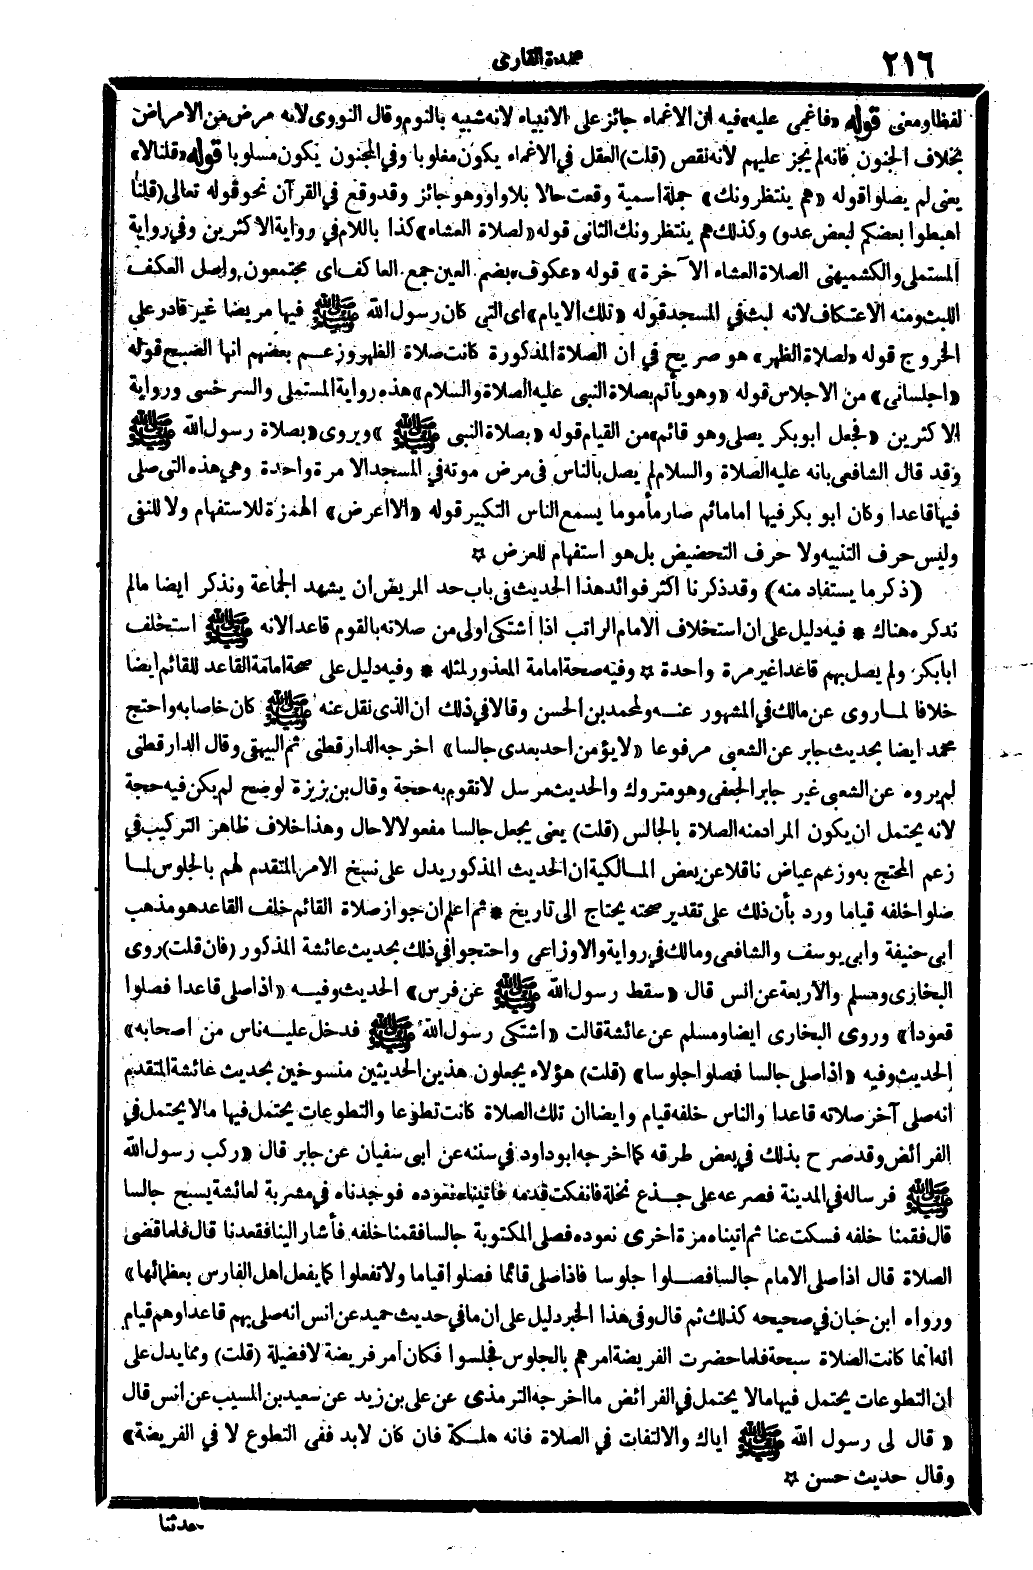 ٢١٦
عمدة القارى
لفظا ومعنى قوله «فاغمى عليه» فيه ان الاغماء جائز على الانبياء لانه شبيه بالنوم وقال النووى لانه مرض من الامراض
بخلاف الجنون فانه لم يجز عليهم لانه نقص (قلت) العقل في الاغماء يكون مغلوبا وفي المجنون يكون مسلوبا قوله «قلنا لا»
يعنى لم يصلوا قوله «هم ينتظرونك» جملة اسمية وقعت حالا بلا واو وهو جائز وقد وقع في القرآن نحو قوله تعالى (قلنا
اهبطوا بعضكم لبعض عدو) وكذلك هم ينتظرونك الثانى قوله «لصلاة العشاء» كذا باللام في رواية الاكثرين وفي رواية
المستملى والكشميهنى الصلاة العشاء الآخرة» قوله «عكوف» بضم العين جمع العاكف اى مجتمعون واصل العكف
اللبث ومنه الاعتكاف لانه لبث في المسجد قوله «تلك الايام» اى التى كان رسول الله ﷺ فيها مريضا غير قادر على
الخروج قوله «لصلاة الظهر» هو صريح في ان الصلاة المذكورة كانت صلاة الظهر وزعم بعضهم انها الصبح قوله
«اجلسانى» من الاجلاس قوله «وهو يأتم بصلاة النبى عليه الصلاة والسلام» هذه رواية المستملى والسرخسى ورواية
الاكثرين «فجعل ابو بكر يصلى وهو قائم» من القيام قوله «بصلاة النبى ﷺ» ويروى «بصلاة رسول الله ﷺ
وقد قال الشافعى بانه عليه الصلاة والسلام لم يصل بالناس فى مرض موته في المسجد الا مرة واحدة وهى هذه التى صلى
فيها قاعدا وكان ابو بكر فيها اماما ثم صار مأموما يسمع الناس التكبير قوله «الا اعرض» الهمزة للاستفهام ولا للنفى
وليس حرف التنبيه ولا حرف التحضيض بل هو استفهام للعرض ☆
(ذكر ما يستفاد منه) وقد ذكرنا اكثر فوائد هذا الحديث فى باب حد المريض ان يشهد الجماعة ونذكر ايضا ما لم
نذكره هناك * فيه دليل على ان استخلاف الامام الراتب اذا اشتكى اولى من صلاته بالقوم قاعدا لانه ﷺ استخلف
ابا بكر ولم يصل بهم قاعدا غير مرة واحدة ☆ وفيه صحة امامة المعذور لمثله * وفيه دليل على صحة امامة القاعد للقائم ايضا
خلافا لما روى عن مالك في المشهور عنه ولمحمد بن الحسن وقالا في ذلك ان الذى نقل عنه ﷺ كان خاصا به واحتج
محمد ايضا بحديث جابر عن الشعبى مرفوعا «لا يؤمن احد بعدى جالسا» اخرجه الدارقطنى ثم البيهقى وقال الدارقطنى
لم يروه عن الشعبى غير جابر الجعفى وهو متروك والحديث مرسل لا تقوم به حجة وقال بن بزيزة لو صح لم يكن فيه حجة
لانه يحتمل ان يكون المراد منه الصلاة بالجالس (قلت) يعنى يجعل جالسا مفعولا لا حال وهذا خلاف ظاهر التركيب في
زعم المحتج به وزعم عياض ناقلا عن بعض المالكية ان الحديث المذكور يدل على نسخ الامر المتقدم لهم بالجلوس لما
صلوا خلفه قياما ورد بأن ذلك على تقدير صحته يحتاج الى تاريخ * ثم اعلم ان جواز صلاة القائم خلف القاعد هو مذهب
ابى حنيفة وابى يوسف والشافعى ومالك في رواية والاوزاعى واحتجوا في ذلك بحديث عائشة المذكور (فان قلت) روى
البخارى ومسلم والاربعة عن انس قال «سقط رسول الله ﷺ عن فرس» الحديث وفيه «اذا صلى قاعدا فصلوا
قعودا» وروى البخارى ايضا ومسلم عن عائشة قالت «اشتكى رسول الله ﷺ فدخل عليه ناس من اصحابه»
الحديث وفيه «اذا صلى جالسا فصلوا جلوسا» (قلت) هؤلاء يجعلون هذين الحديثين منسوخين بحديث عائشة المتقدم
انه صلى آخر صلاته قاعدا والناس خلفه قيام وايضا ان تلك الصلاة كانت تطوعا والتطوعات يحتمل فيها ما لا يحتمل في
الفرائض وقد صرح بذلك في بعض طرقه كما اخرجه ابو داود في سننه عن ابى سفيان عن جابر قال «ركب رسول الله
ﷺ فرسا له في المدينة فصرعه على جذع نخلة فانفكت قدمه فاتيناه نعوده فوجدناه في مشربة لعائشة يسبح جالسا
قال فقمنا خلفه فسكت عنا ثم اتيناه مرة اخرى نعوده فصلى المكتوبة جالسا فقمنا خلفه فأشار الينا فقعدنا قال فلما قضى
الصلاة قال اذا صلى الامام جالسا فصلوا جلوسا فاذا صلى قائما فصلوا قياما ولا تفعلوا كما يفعل اهل الفارس بعظمائها»
ورواه ابن حبان في صحيحه كذلك ثم قال وفى هذا الخبر دليل على ان ما في حديث حميد عن انس انه صلى بهم قاعدا وهم قيام
انه انما كانت الصلاة سبحة فلما حضرت الفريضة امرهم بالجلوس فجلسوا فكان أمر فريضة لا فضيلة (قلت) ومما يدل على
ان التطوعات يحتمل فيها ما لا يحتمل في الفرائض ما اخرجه الترمذى عن على بن زيد عن سعيد بن المسيب عن انس قال
« قال لى رسول الله ﷺ اياك والالتفات في الصلاة فانه هلكة فان كان لابد ففى التطوع لا في الفريضة»
وقال حديث حسن ☆
حدثنا